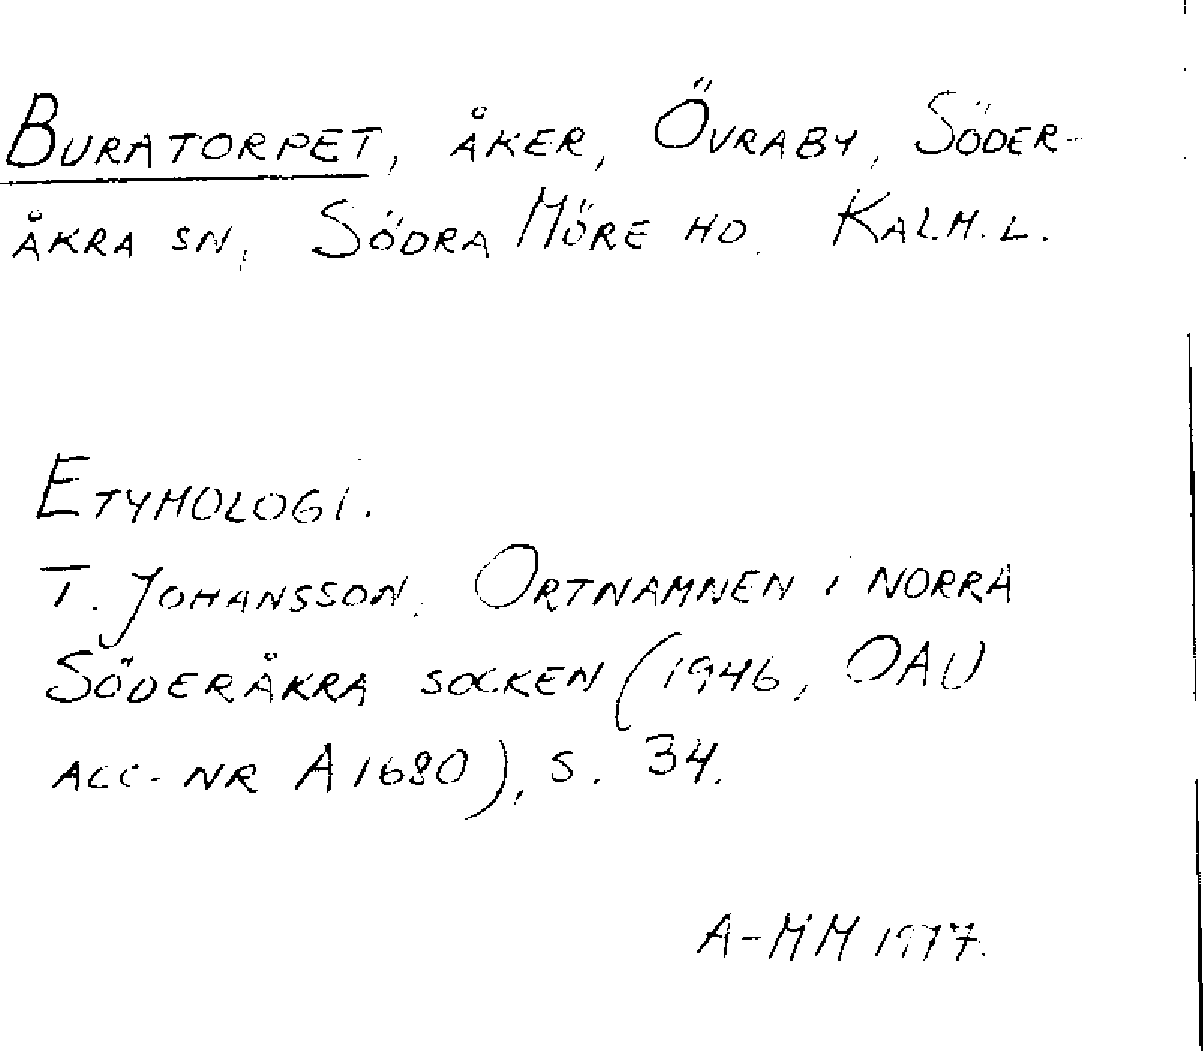 BURATORPET, ÅKER, ÖVRABY, SÖDER-
ÅKRA SN, SÖDRA MÖRE HD. KALM.L.
ETYMOLOGI.
T. JOHANSSON. ORTNAMNEN I NORRA
SÖDERÅKRA SOCKEN (1946, OAU
ACC-NR A1680), S. 34.
A-MM 1977.